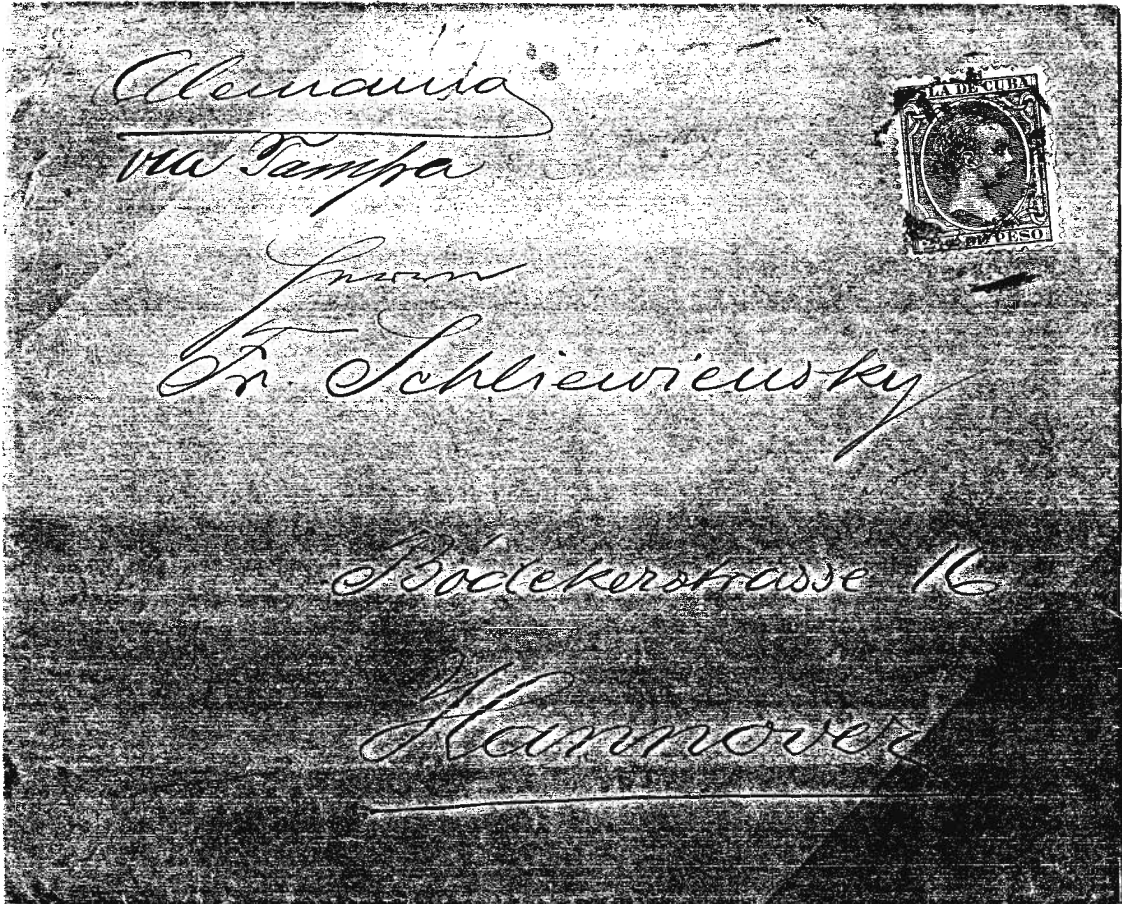 Alemania
via Tampa
LA DE CUBA
DE PESO
Herrn
Fr. Schliewiensky
Bödekerstrasse 16
Hannover